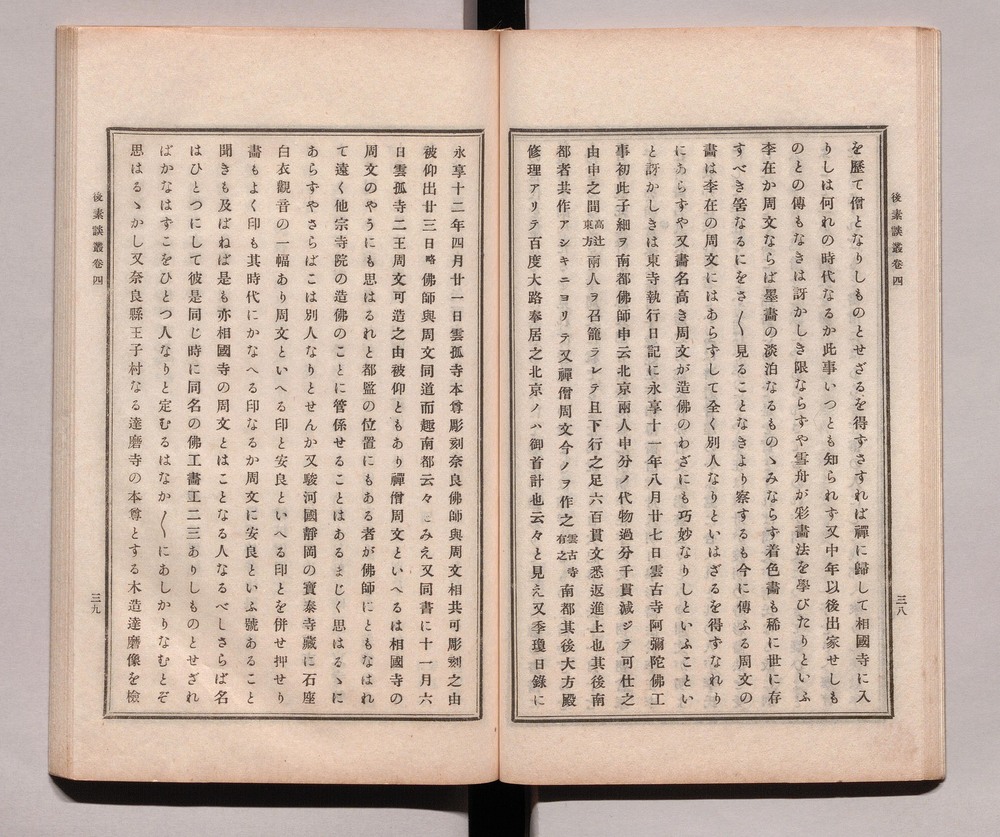 後素談叢卷四
三八
を歷て僧となりしものとせざるを得すされば禪に歸して相國寺に入
りしは何れの時代なるか此事いつとも知られす又中年以後出家せしも
のとの傳もなきは訝かしき限ならすや雪舟が彩畫法を學びたりといふ
李在か周文ならば墨畫の淡泊なるものゝみならす着色畫も稀に世に存
すべき筈なるにをさ〱見ることなきより察するも今に傳ふる周文の
畫は李在の周文にはあらすして全く別人なりといはざるを得すなれり
にあらすや又畫名高き周文が造佛のわざにも巧妙なりしといふことい
と訝かしきは東寺執行日記に永享十一年八月廿七日雲古寺阿彌陀佛工
事初此子細ヲ南都佛師申云北京兩人申分ノ代物過分千貫減ジテ可仕之
由申之間高辻東方兩人ヲ召籠ラレテ且下行之足六百貫文悉返進上也其後南
都者其作アシキニヨリテ又禪僧周文今ノヲ作之雲古寺有之南都其後大方殿
修理アリテ百度大路奉居之北京ノハ御首計也云々と見え又季瓊日錄に
永享十二年四月廿一日雲孤寺本尊彫刻奈良佛師與周文相共可彫刻之由
被仰出廿三日略佛師與周文同道而趣南都云々とみえ又同書に十一月六
日雲孤寺二王周文可造之由被仰ともあり禪僧周文といへるは相國寺の
周文のやうにも思はるれと都監の位置にもある者が佛師にともなはれ
て遠く他宗寺院の造佛のことに管係せることはあるまじく思はるゝに
あらすやさらばこは別人なりとせんか又駿河國靜岡の寶泰寺藏に石座
白衣觀音の一幅あり周文といへる印と安良といへる印とを併せ押せり
畵もよく印も其時代にかなへる印なるか周文に安良といふ號あること
聞きも及ばねば是も亦相國寺の周文とはことなる人なるべしさらば名
はひとつにして彼是同じ時に同名の佛工畫工二三ありしものとせざれ
ばかなはすこをひとつ人なりと定むるはなか〱にあしかりなむとぞ
思はるゝかし又奈良縣王子村なる達磨寺の本尊とする木造達磨像を檢
後素談叢卷四
三九